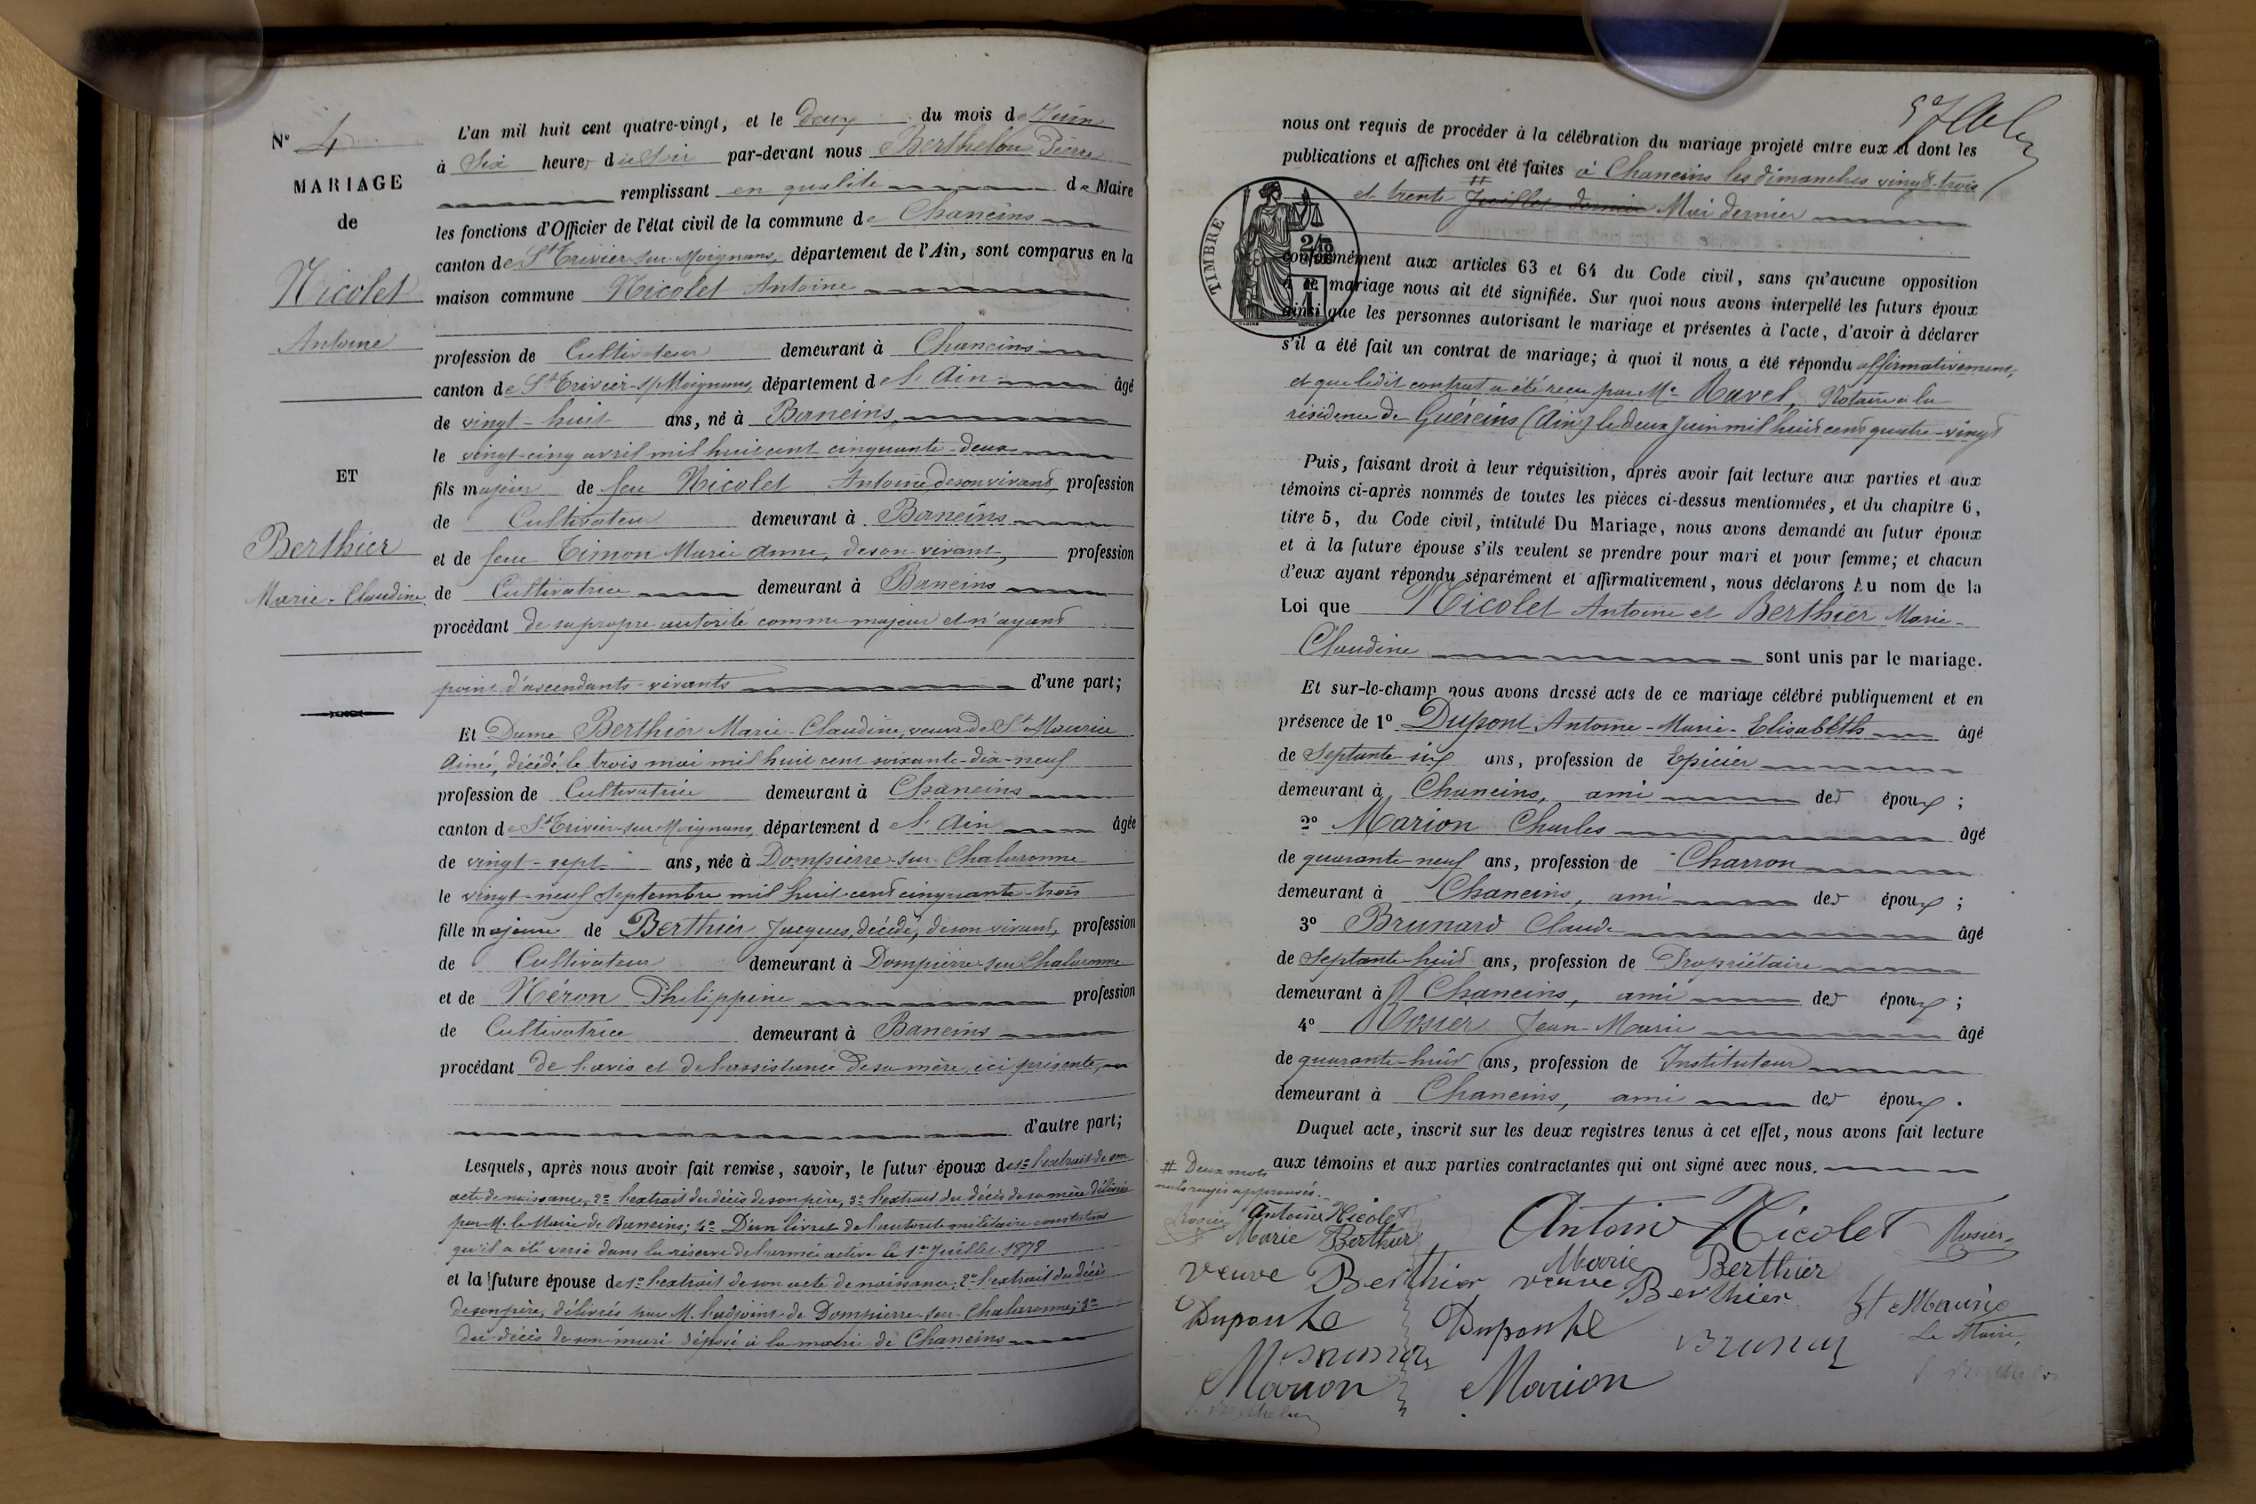 N° 4
MARIAGE
de
Nicolet
Antoine
ET
Berthier
Marie-Claudine
L'an mil huit cent quatre-vingt, et le deux du mois de Juin
à Six heures du Soir par-devant nous Berthelon Pierre
remplissant en qualité de Maire
les fonctions d'Officier de l'état civil de la commune de Chaneins
canton de St Trivier-sur-Moignans, département de l'Ain, sont comparus en la
maison commune Nicolet Antoine
profession de Cultivateur demeurant à Chaneins
canton de St Trivier-s/Moignans, département de l'Ain âgé
de vingt-huit ans, né à Baneins,
le vingt-cinq avril mil huit cent cinquante-deux
fils majeur de feu Nicolet Antoine, de son vivant, profession
de Cultivateur demeurant à Baneins
et de feue Timon Marie Anne, de son vivant, profession
de Cultivatrice demeurant à Baneins
procédant de sa propre autorité comme majeur et n'ayant
point d'ascendants vivants d'une part;
Et Dame Berthier Marie-Claudine, veuve de St Maurice
Aimé, décédé le trois mai mil huit cent soixante-dix-neuf
profession de Cultivatrice demeurant à Chaneins
canton de St Trivier-sur-Moignans, département de l'Ain âgée
de vingt-sept ans, née à Dompierre-sur-Chalaronne
le vingt-neuf Septembre mil huit cent cinquante-trois
fille majeure de Berthier Jacques, décédé, de son vivant, profession
de Cultivateur demeurant à Dompierre-sur-Chalaronne
et de Néron Philippine profession
de Cultivatrice demeurant à Baneins
procédant de l'avis et de l'assistance de sa mère, ici présente,
d'autre part;
Lesquels, après nous avoir fait remise, savoir, le futur époux de 1° l'extrait de son
acte de naissance, 2° l'extrait du décès de son père, 3° l'extrait du décès de sa mère délivrés
par M. le Maire de Baneins; 4° D'un livret de l'autorité militaire constatant
qu'il a été versé dans la réserve de l'armée active le 1er Juillet 1878
et la future épouse de 1° l'extrait de son acte de naissance, 2° l'extrait du décès
de son père, délivrés par M. l'adjoint de Dompierre-sur-Chalaronne; 3°
du décès de son mari déposé à la mairie de Chaneins
nous ont requis de procéder à la célébration du mariage projeté entre eux et dont les
publications et affiches ont été faites à Chaneins les dimanches vingt-trois
et trente # Juillet dernier Mai dernier
TIMBRE
conformément aux articles 63 et 64 du Code civil, sans qu'aucune opposition
à ce mariage nous ait été signifiée. Sur quoi nous avons interpellé les futurs époux
ainsi que les personnes autorisant le mariage et présentes à l'acte, d'avoir à déclarer
s'il a été fait un contrat de mariage; à quoi il nous a été répondu affirmativement,
et que ledit contrat a été reçu par Me Ravel, Notaire à la
résidence de Guéreins (Ain) le deux Juin mil huit cent quatre-vingt
Puis, faisant droit à leur réquisition, après avoir fait lecture aux parties et aux
témoins ci-après nommés de toutes les pièces ci-dessus mentionnées, et du chapitre 6,
titre 5, du Code civil, intitulé Du Mariage, nous avons demandé au futur époux
et à la future épouse s'ils veulent se prendre pour mari et pour femme; et chacun
d'eux ayant répondu séparément et affirmativement, nous déclarons Au nom de la
Loi que Nicolet Antoine et Berthier Marie-
Claudine sont unis par le mariage.
Et sur-le-champ nous avons dressé acte de ce mariage célébré publiquement et en
présence de 1° Dupont Antoine-Marie-Elisabeth âgé
de Septante-six ans, profession de Epicier
demeurant à Chaneins, ami des époux;
2° Marion Charles âgé
de quarante-neuf ans, profession de Charron
demeurant à Chaneins, ami des époux;
3° Brunard Claude âgé
de Septante-huit ans, profession de Propriétaire
demeurant à Chaneins, ami des époux;
4° Rosier Jean-Marie âgé
de quarante-huit ans, profession de Instituteur
demeurant à Chaneins, ami des époux.
Duquel acte, inscrit sur les deux registres tenus à cet effet, nous avons fait lecture
aux témoins et aux parties contractantes qui ont signé avec nous.
# Deux mots
rayés approuvés.
Rosier Antoine Nicolet
Marie Berthier
Antoin Nicolet Rosier
Marie Berthier
veuve Berthier veuve Berthier
St Maurice
Dupont Dupont
Le Maire,
Marion Marion